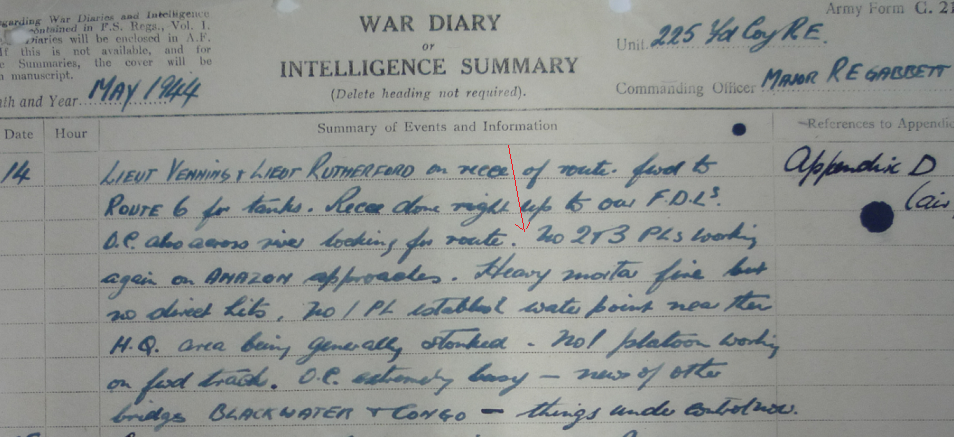 egarding War Diaries and Intelligence
contained in F.S. Regs., Vol. 1.
Diaries will be enclosed in A.F.
If this is not available, and for
e Summaries, the cover will be
n manuscript.
WAR DIARY
or
INTELLIGENCE SUMMARY
(Delete heading not required).
Army Form C. 21
Unit 225 Fd Coy R.E.
Commanding Officer MAJOR R E GABBETT
nth and Year MAY 1944
Date Hour Summary of Events and Information References to Appendic
14 LIEUT VENNING & LIEUT RUTHERFORD on recce of route fwd to
ROUTE 6 for tanks. Recce done right up to our F.D.Ls.
O.C. also across river looking for route. No 2 & 3 PLs working
again on AMAZON approaches. Heavy mortar fire but
no direct hits. No 1 PL established water point near the
H.Q. area being generally stonked - No 1 platoon working
on fwd track. O.C. extremely busy - news of other
bridges BLACKWATER & CONGO - things under control now.
Appendix D
(air